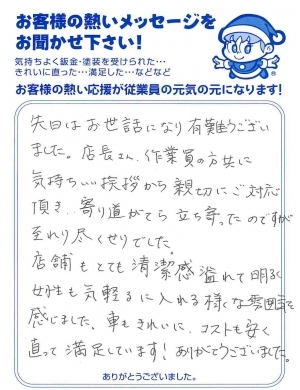 お客様の熱いメッセージを
お聞かせ下さい!
気持ちよく鈑金・塗装を受けられた…
きれいに直った…満足した…などなど
お客様の熱い応援が従業員の元気の元になります!
先日はお世話になり有難うござい
ました。店長さん、作業員の方共に
気持ちいい挨拶から親切にご対応
頂き、寄り道がてら立ち寄ったのですが
至れり尽くせりでした。
店舗もとても清潔感溢れて明るく
女性も気軽るに入れる様な雰囲気を
感じました。車もきれいに、コストも安く
直って満足しています!ありがとうございました。
ありがとうございました。